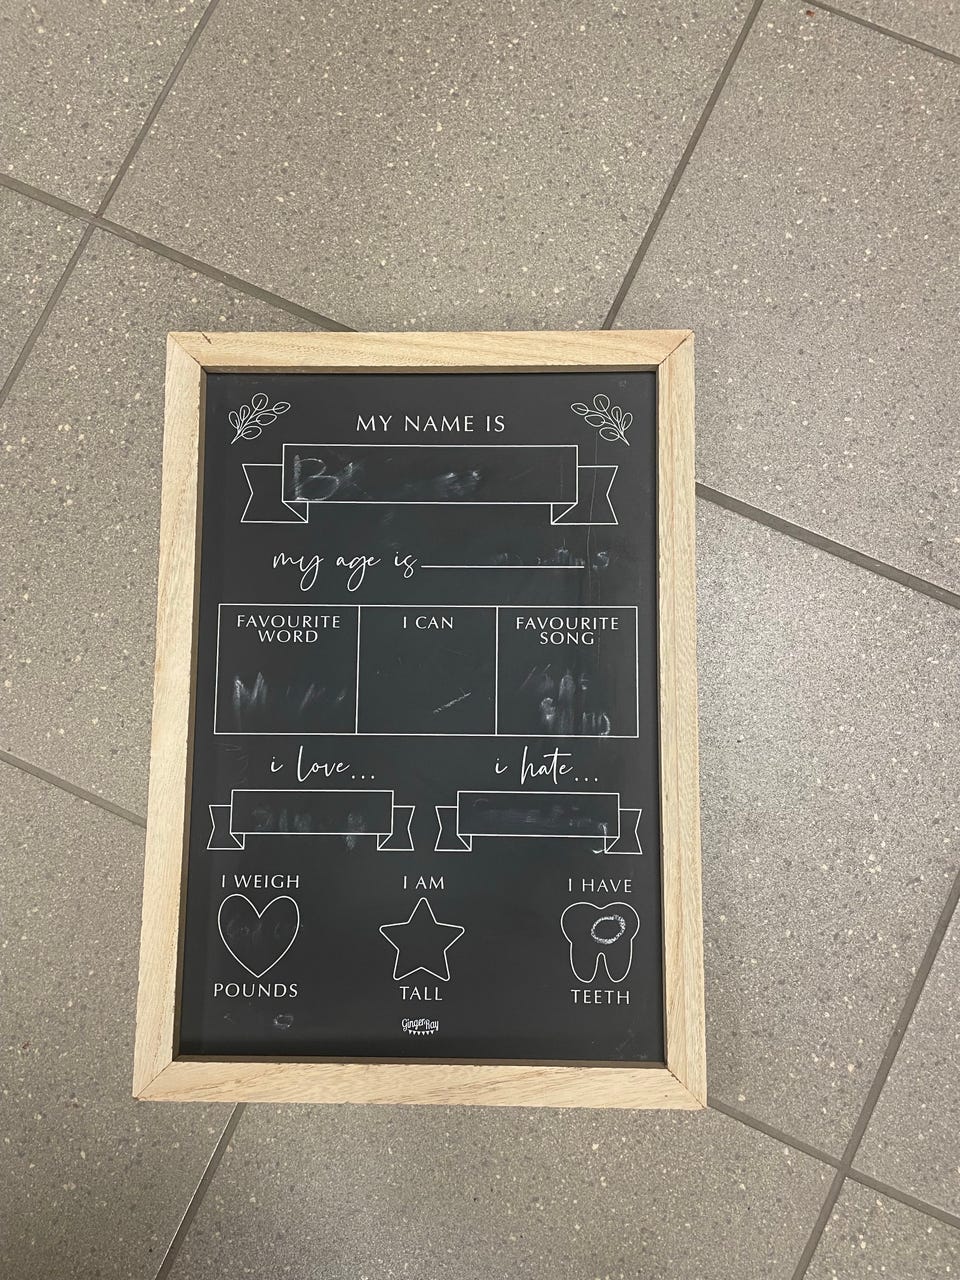 MY NAME IS
B
my age is
FAVOURITE WORD
I CAN
FAVOURITE SONG
i love...
i hate...
I WEIGH
POUNDS
I AM
TALL
I HAVE
0
TEETH
GingerRay